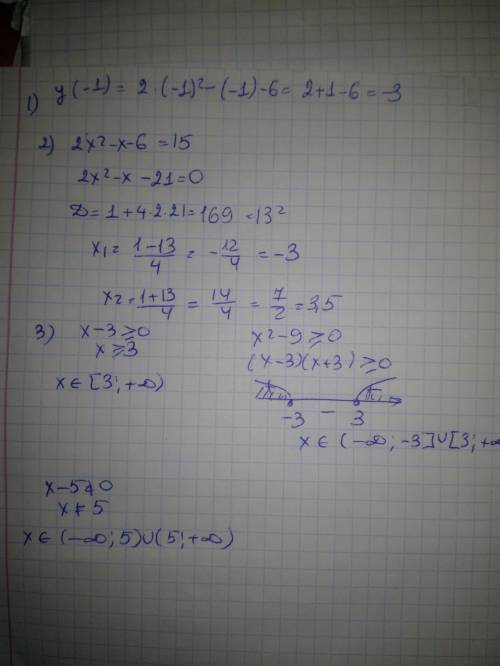 1) y(-1) = 2·(-1)²-(-1)-6 = 2+1-6 = -3
2) 2x²-x-6 = 15
2x²-x-21=0
D = 1+4·2·21 = 169 = 13²
x₁ = (1-13)/4 = -12/4 = -3
x₂ = (1+13)/4 = 14/4 = 7/2 = 3,5
3) x-3⩾0
x⩾3
x∈[3;+∞)
x²-9⩾0
(x-3)(x+3)⩾0
-3 − 3
x∈(-∞;-3]∪[3;+∞
x-5≠0
x≠5
x∈(-∞;5)∪(5;+∞)